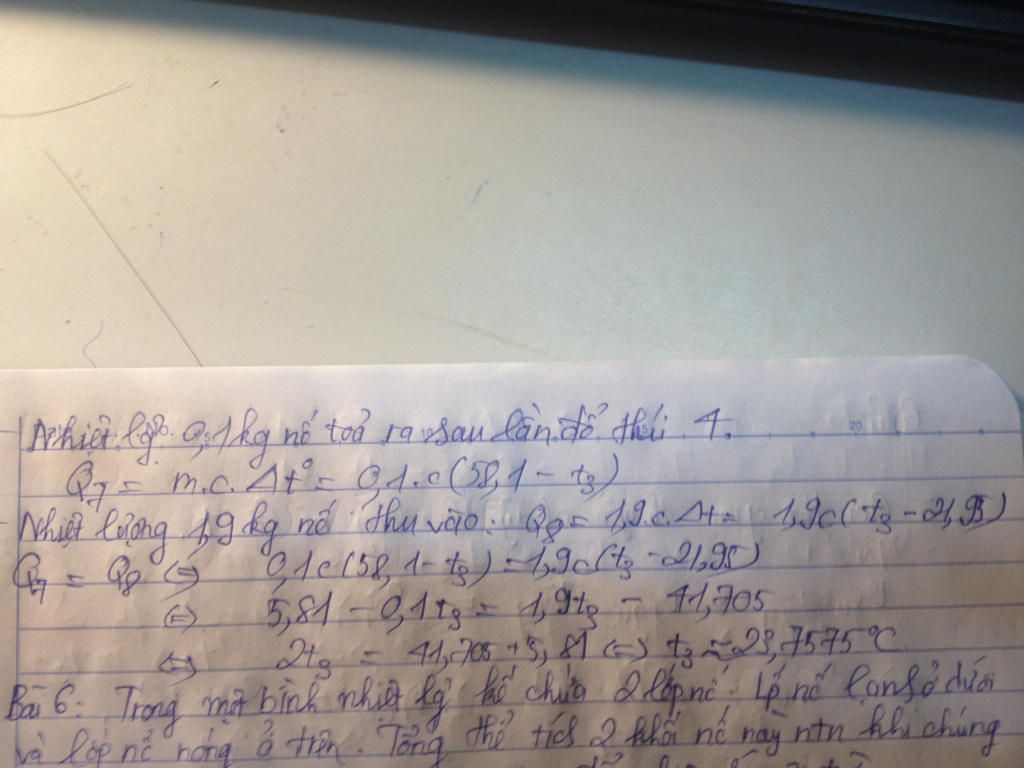 Nhiệt lg² 0,1kg nc toả ra sau lần đổ thứ 4.
Q7 = m.c.Δt° = 0,1.c(58,1 - t3)
Nhiệt lượng 1,9kg nc thu vào: Q8 = 1,9.c.Δt = 1,9c(t3 - 21,95)
Q7 = Q8 <=> 0,1c(58,1 - t3) = 1,9c(t3 - 21,95)
<=> 5,81 - 0,1t3 = 1,9t3 - 41,705
<=> 2t3 = 41,705 + 5,81 <=> t3 ≈ 23,7575°C
Bài 6: Trong một bình nhiệt lg kế chứa 2 lớp nc. Lớp nc lạnh ở dưới
và lớp nc nóng ở trên. Tổng thể tích 2 khối nc này ntn khi chúng